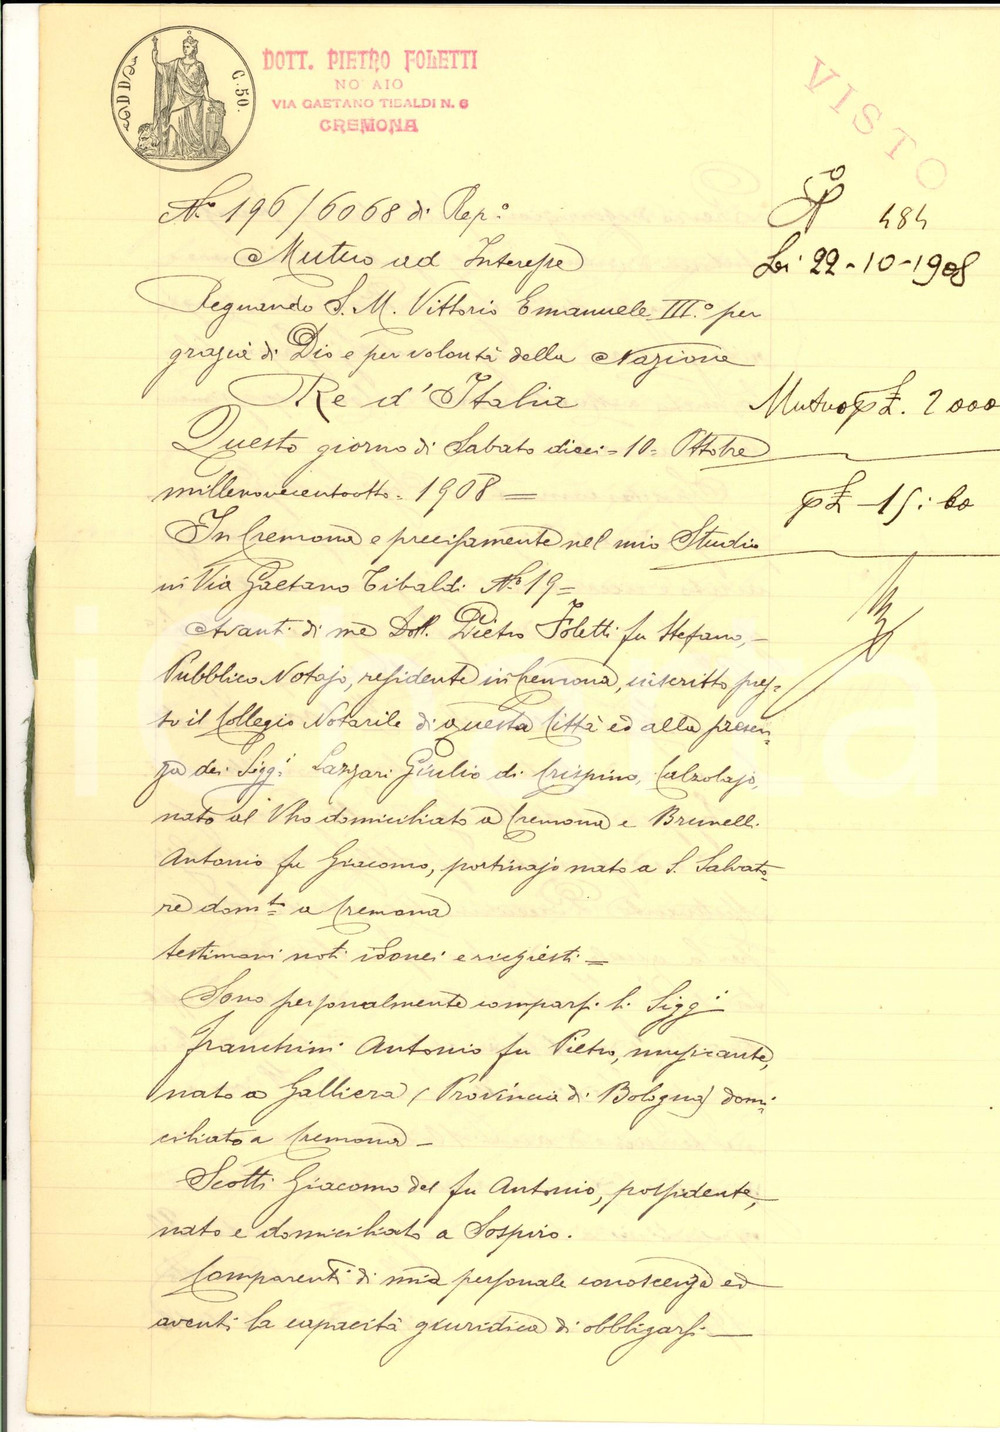 C. 50.
DOTT. PIETRO FOLETTI
NO AIO
VIA GAETANO TIBALDI N. 6
CREMONA
VISTO
N.° 196/6068 di Rep.°
Mutuo ad Interesse
Regnando S. M. Vittorio Emanuele III.° per
grazia di Dio e per volontà della Nazione
Re d'Italia
Questo giorno di Sabato dieci = 10 = Ottobre
millenovecentootto - 1908 =
In Cremona e precisamente nel mio Studio
in Via Gaetano Tibaldi N.° 19 =
Avanti di me Dott. Pietro Foletti fu Stefano, -
Pubblico Notajo, residente in Cremona, inscritto pres-
so il Collegio Notarile di questa Città ed alla presen-
za dei Sigg.i Lazzari Giulio di Crispino, Calzolajo,
nato al Vho domiciliato a Cremona e Brunelli
Antonio fu Giacomo, portinajo nato a S. Salvato-
re dom.to a Cremona
testimoni noti idonei e richiesti =
Sono personalmente comparsi li Sigg.i
Franchini Antonio fu Pietro, musicante,
nato a Galliera (Provincia di Bologna) domi-
ciliato a Cremona -
Scotti Giacomo del fu Antonio, possidente,
nato e domiciliato a Sospiro.
Comparenti di mia personale conoscenza ed
aventi la capacità giuridica di obbligarsi -
484
22-10-1908
Mutuo £. 2000
£ 15:60